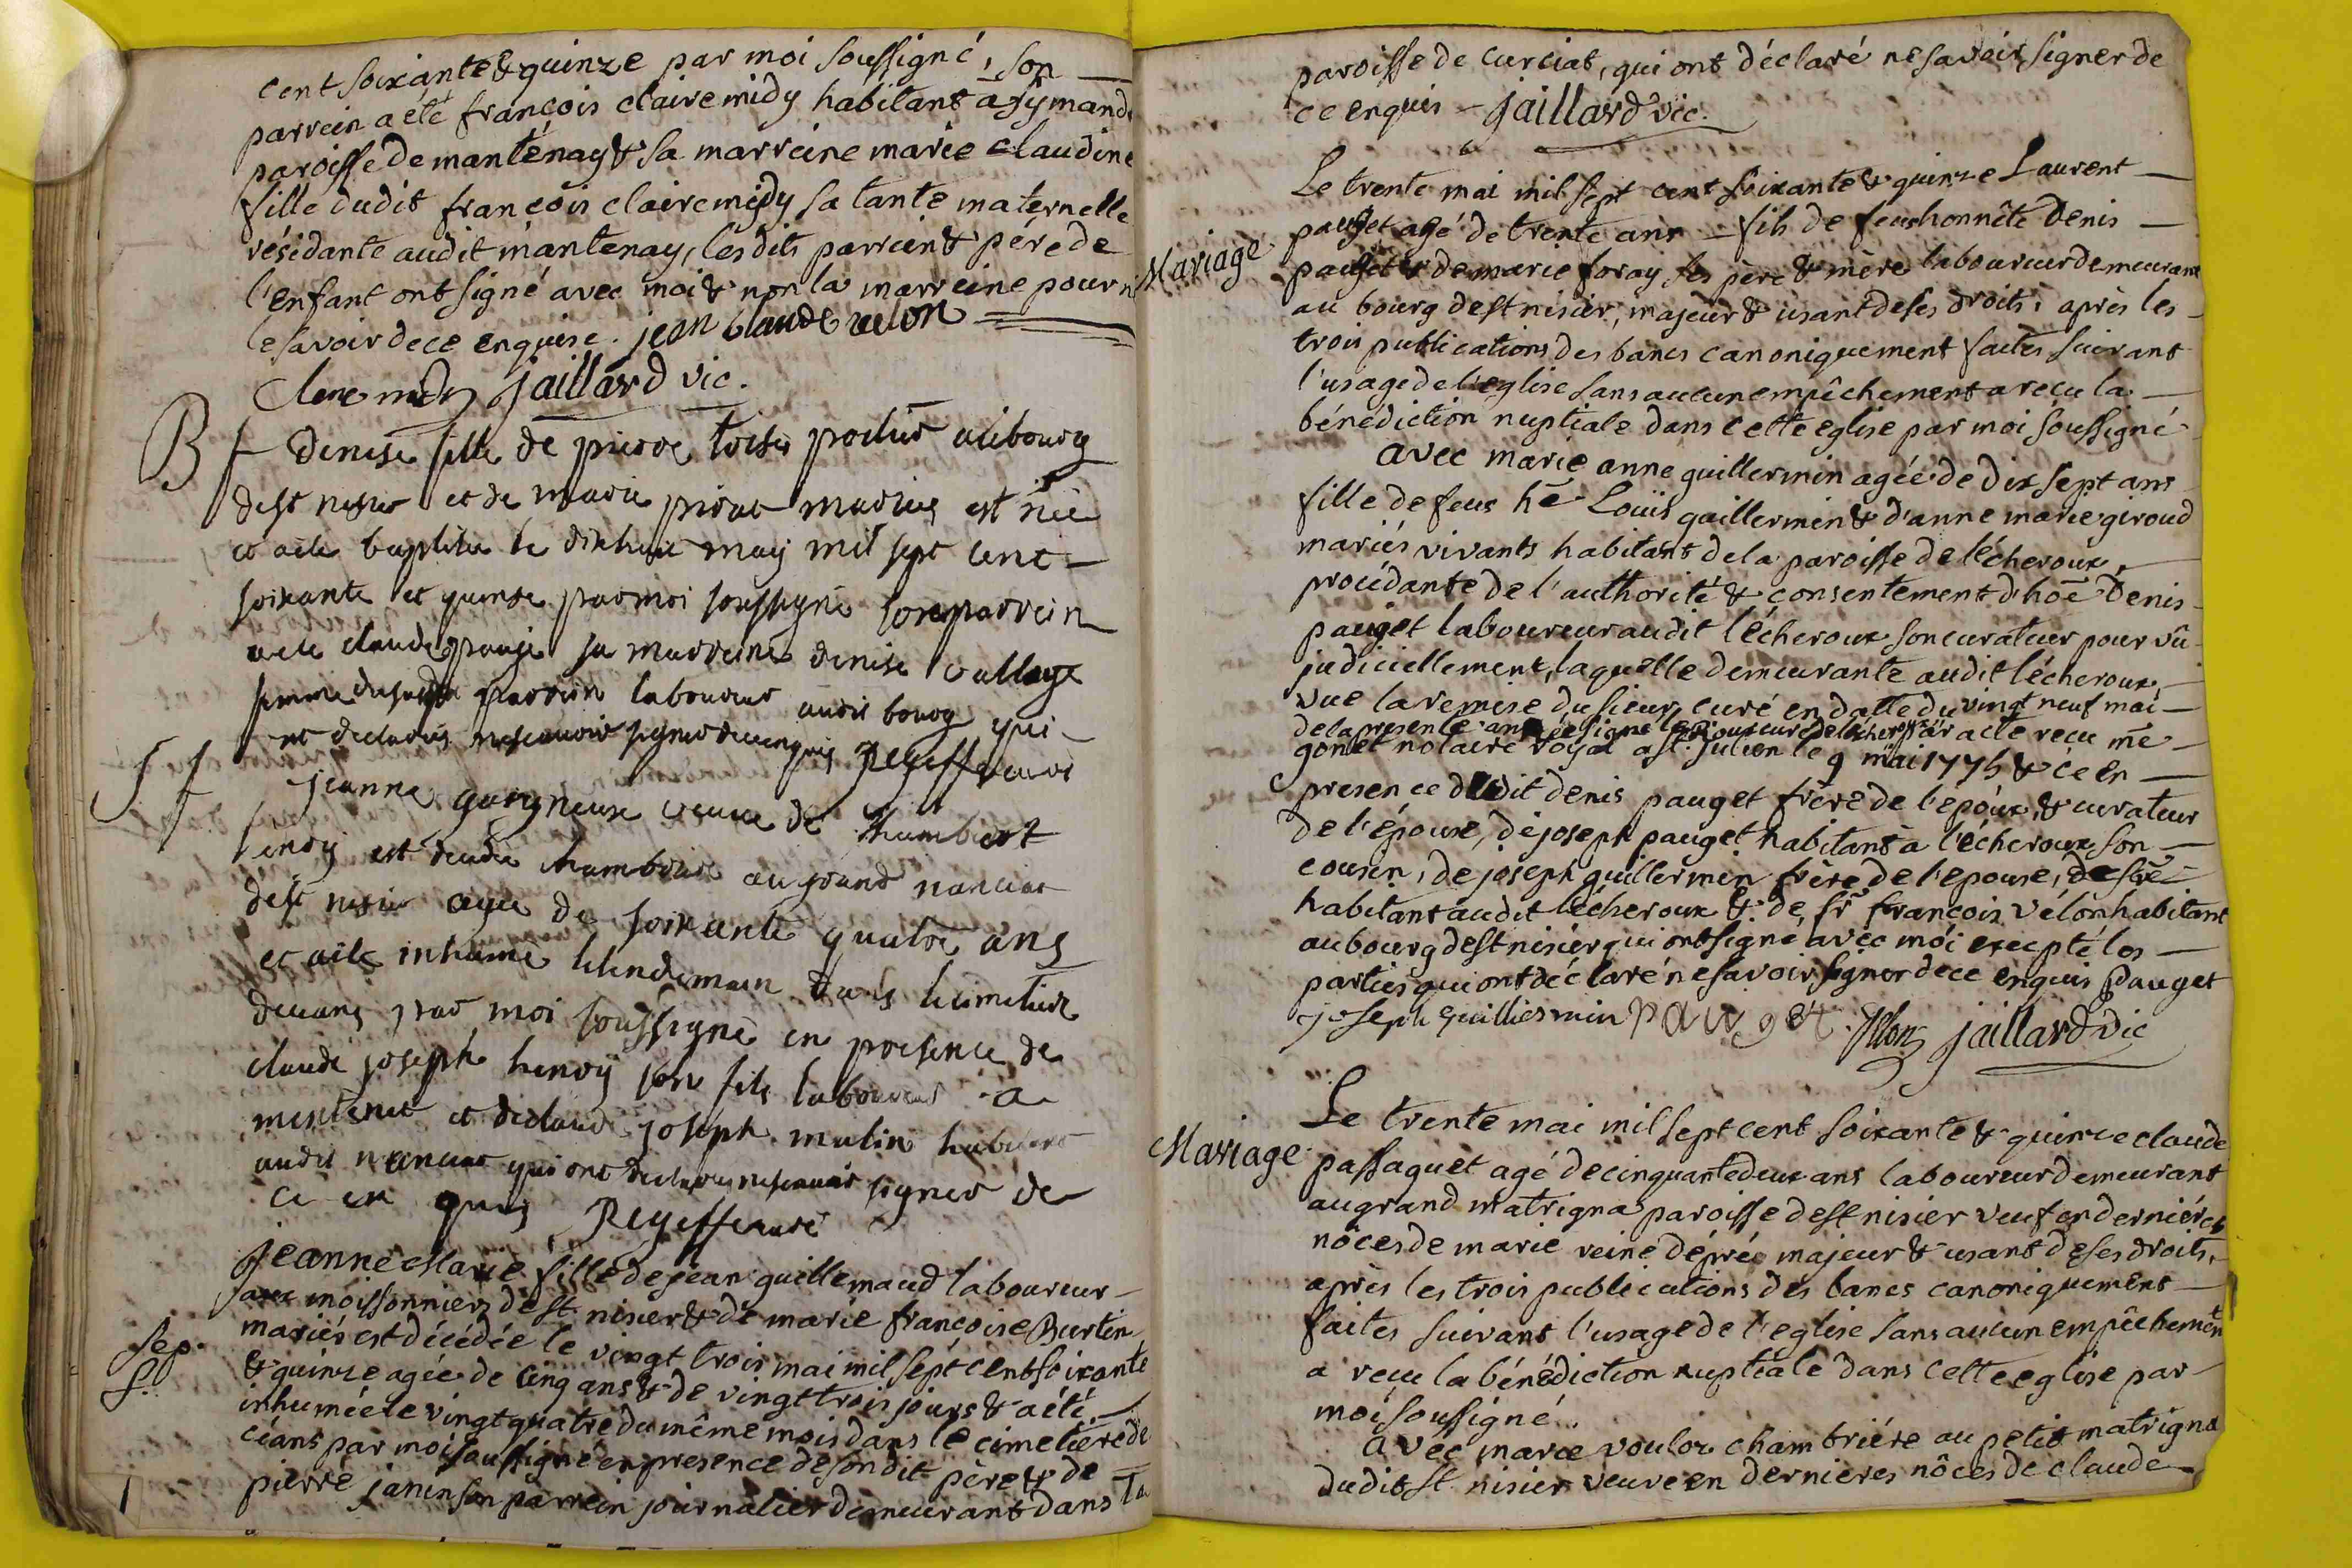 cent soixante & quinze par moi soussigné, son
parrein a été françois clairemidy habitant à fÿmand
paroisse de manténay & sa marreine marie claudine
fille dudit françois clairemidy sa tante maternelle
résidante audit mantenay, lesdits parrein & père de
l'enfant ont signé avec moi & non la marreine pour n
le savoir de ce enquise. jean claude velon
jaillard vic.
B f Denise fille de pierre portier au bourg
dest nisier et de marie mariés est née
et a ete baptisée le dixhuit may mil sept cent
soixante et quinse par moi soussigné son parrein
a ete claude pauget sa marreine denise vallaye
femme dudit parrein laboureur audit bourg qui
ont déclarés ne scavoir signer de ce enquis
S f Jeanne veuve de humbert
henry est decedée chambriere au grand nanciat
dest nisier agée de soixante quatre ans
et a ete inhumé le lendemain dans le cimetiere
ceans par moi soussigné en presence de
claude joseph henrÿ son fils laboureur a
et de claude joseph mulin habitant
audit nanciat qui ont déclarés ne scavoir signer de
ce en quis
Jeanne Marie fille de jean guillemaud laboureur
aux moissonniers de st. nisier & de marie francoise Burtin
mariés est décédée le vingt trois mai mil sept cent soixante
Sep.
& quinze agée de cinq ans & de vingt trois jours & a été
f.
inhumée le vingt quatre du même mois dans le cimetière de
céans par moi soussigné en presence de son dit père & de
pierre janin son parrein journalier demeurant dans la
paroisse de curciat, qui ont déclaré ne savoir signer de
ce enquis - jaillard vic.
Le trente mai mil sept cent soixante & quinze Laurent
pauget agé de trente ans fils de feus honnête Denis
Mariage
pauget & de marie foray ses père & mère laboureur demeurant
au bourg de st nisier, majeur & usant de ses droits, après les
trois publications des bancs canoniquement faites suivant
l'usage de l'eglise sans aucun empêchement a recu la
bénédiction nuptiale dans cette eglise par moi soussigné
avec marie anne guillermin agée de dix sept ans
fille de feus he Loüis guillermin & d'anne marie giroud
mariés vivants habitans de la paroisse de lécheroux,
procédante de l'authorité & consentement d'hoe Denis
pauget laboureur audit lécheroux son curateur pour vû
judiciellement, laquelle demeurante audit lécheroux,
vue la remise du sieur curé en datte du vingt neuf mai
de la presente année signé par acte recu me
gonet notaire royal a st. julien le 9 mai 1775 & ce en
presence dudit denis pauget frère de l'époux, & curateur
de l'épouse, de joseph pauget habitant à l'écheroux son
cousin, de joseph guillermin frère de l'epouse,
habitant audit lécheroux & de sr françois vélon habitant
au bourg de st nisier qui ont signé avec moi excepté les
parties qui ont déclaré ne savoir signer de ce enquis Pauget
joseph guilliermin pauget Velon jaillard vic
Le trente mai mil sept cent soixante & quinze claude
Mariage
passaquet agé de cinquante deux ans laboureur demeurant
au grand matrigna paroisse de st nisier veuf en dernières
nôces de marie reine dépré majeur & usant de ses droits,
après les trois publications des bancs canoniquement
faites suivant l'usage de l'eglise sans aucun empêchement
a recu la bénédiction nuptiale dans cette eglise par
moi soussigné.
avec marie voulon chambriére au petit matrigna
dudit st. nisier veuve en dernieres nôces de claude